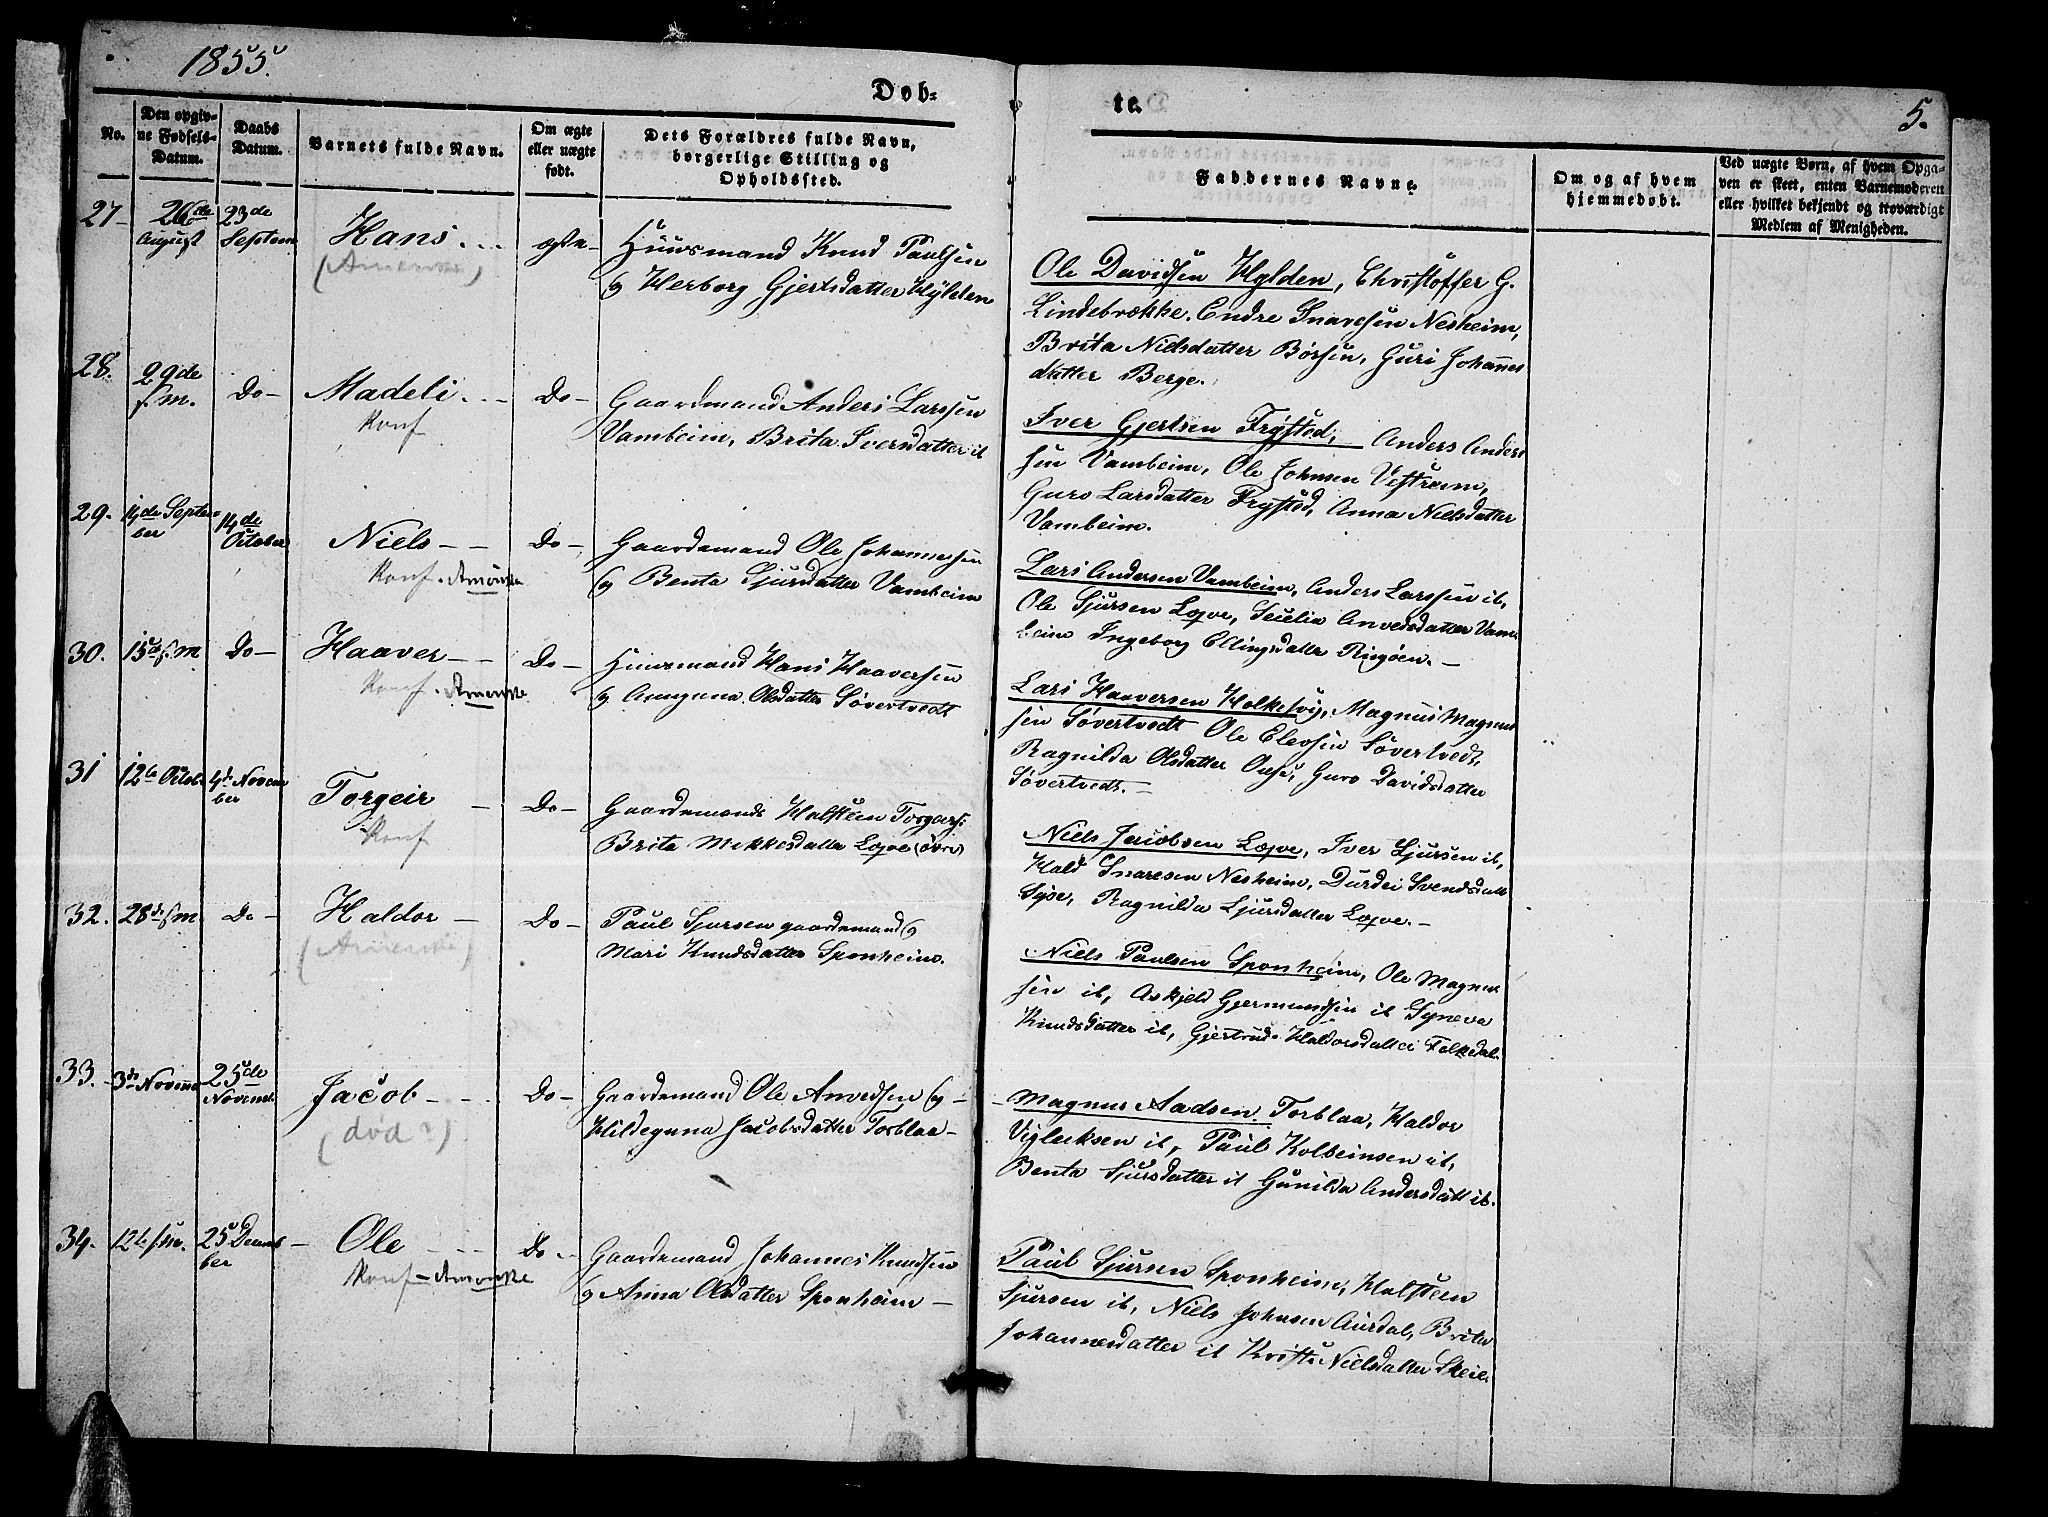 1855.
Døb-
te.
5.
No.
Den opgiv-
ne Fødsels-
Datum.
Daabs
Datum.
Barnets fulde Navn.
Om ægte
eller uægte
født.
Dets Forældres fulde Navn,
borgerlige Stilling og
Opholdssted.
Faddernes Navne.
Om og af hvem
hjemmedøbt.
Ved uægte Børn, af hvem Opga-
ven er skeet, enten Barnemoderen
eller hvilket bekjendt og troværdigt
Medlem af Menigheden.
27-
26de
August
23de
Septem
Hans
(Amerika)
ægte-
Huusmand Knud Paulsen
og Herborg Gjertsdatter Hylden
Ole Davidsen Hylden, Christoffer G.
Lindebrække. Endre Snaresen Nesheim,
Brita Nielsdatter Børsen, Guri Johannes
datter Berge.
28.
29de
s.m.
Do-
Madeli
Konf
Do-
Gaardmand Anders Larssen
Vambeim, Brita Iversdatter it
Iver Gjertsen Trystod, Anders Anders
sen Vambeim, Ole Johnsen Vestreim,
Guro Larsdatter Trystod, Anna Nielsdatter
Vambeim.
29.
14de Septem-
ber
14de
October
Niels
Konf. Amerika
Do-
Gaardemand Ole Johannessen
og Benta Sjursdatter Vambeim
Lars Andersen Vambeim, Anders Larssen it,
Ole Sjursen Lopve, Secelia Anvedsdatter Vam-
beim Ingeborg Ellingsdatter Ringøen.-
30.
15de s.m
Do-
Haaver
Konf. Amerika
Do-
Huusmand Hans Haaversen
og Olsdatter Søvertvedt
Lars Haaversen Holkesvig, Magnus Magnus
sen Søvertvedt Ole Elevsen Søvertvedt,
Ragnilda Olsdatter Guro Davidsdatter
Søvertvedt.-
31
12te Octob.
4de Novem
ber
Torgeir
Konf
Do-
Gaardemand Halsteen Torgers:
Brita Mikkesdatter Lopve (øvre)
Niels Jacobsen Lopve, Iver Sjursen it,
Hald Snaresen Nesheim, Durdei Svendsdatt
Syse, Ragnilda Sjursdatter Lopve.-
32.
28de s.m.
Do-
Haldor
(Amerika)
Do-
Paul Sjursen gaardemand og
Mari Knudsdatter Sponheim.
Niels Paulsen Sponheim, Ole Magnus
sen it, Askjeld Gjermundsen it Syneva
Knudsdatter it, Gjertrud Haldorsdatter Folkedal.
33.
3de Novemb
25de
Novemb.
Jacob
(død?)
Do-
Gaardemand Ole Anvedsen og
Hildeguna Jacobsdatter Torblaa-
Magnus Aadsen Torblaa, Haldor
Vigleiksen it, Paul Kolbeinsen it,
Benta Sjursdatter it Gunilda Andersdatt it.
34.
12te s.m.
25 Decemb
ber
Ole
Konf - Amerika
Do
Gaardemand Johannes Knudsen
og Anna Olsdatter Sponheim-
Paul Sjursen Sponheim, Halsteen
Sjursen it, Niels Johnsen Aurdal, Brita
Johannesdatter it Kristi Nielsdatter Skeie.